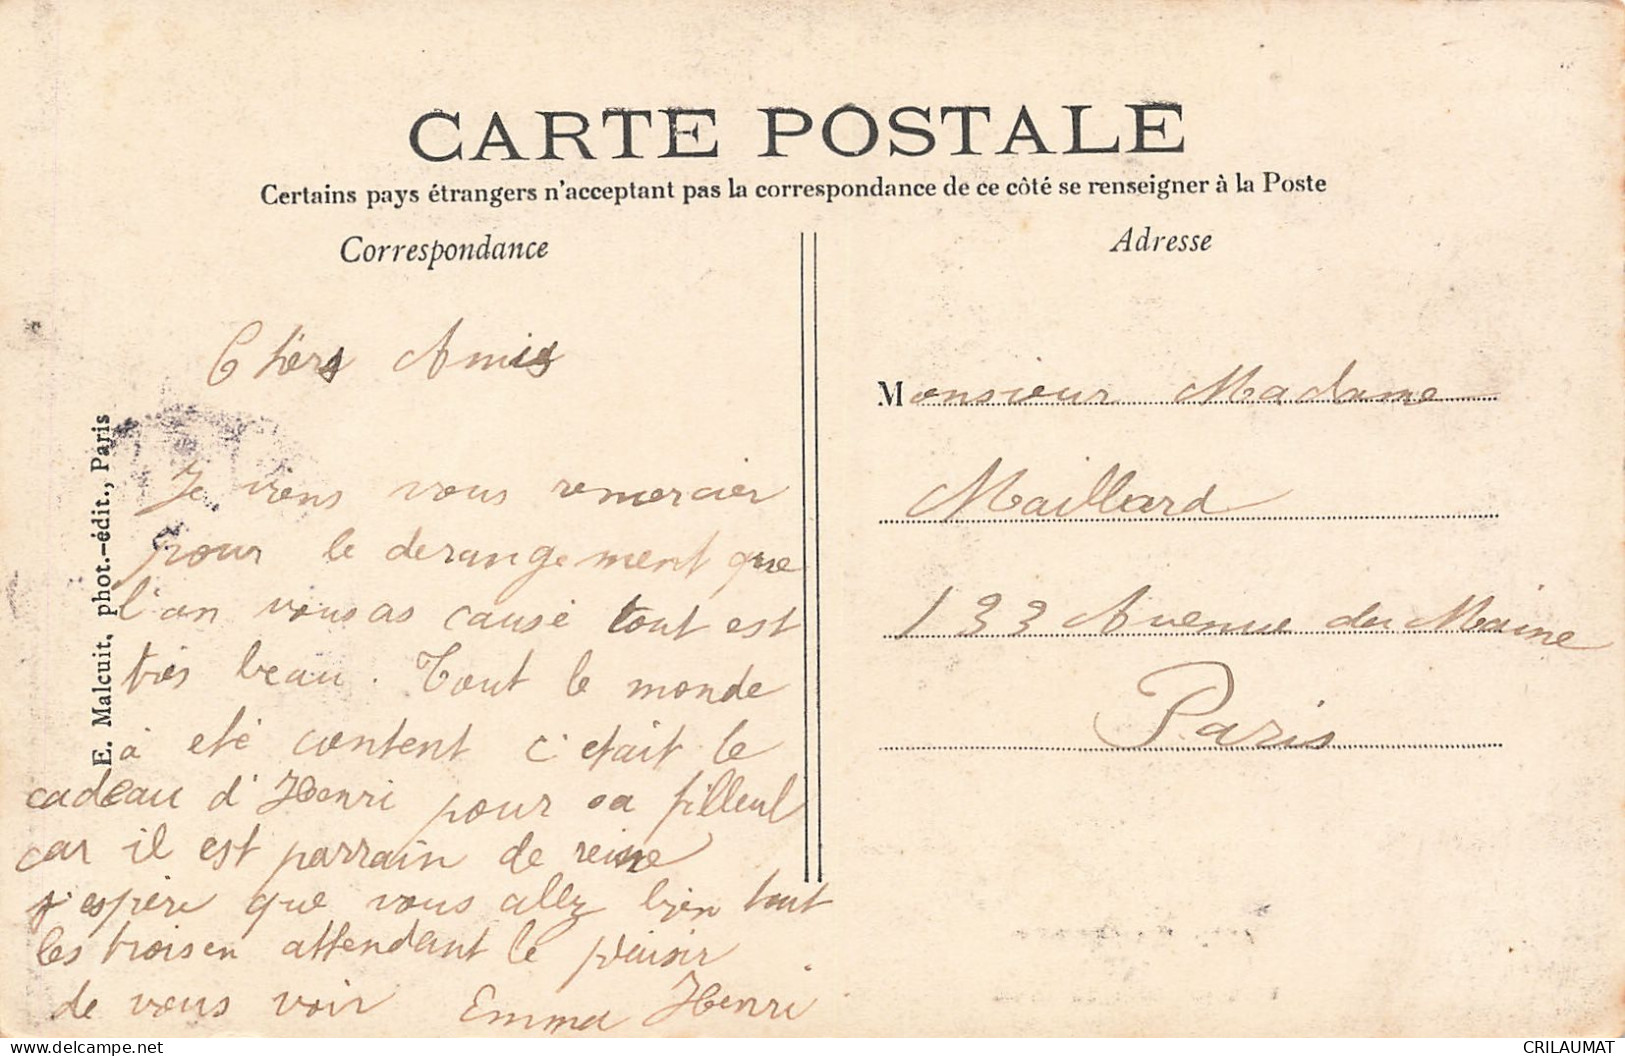 CARTE POSTALE
Certains pays étrangers n'acceptant pas la correspondance de ce côté se renseigner à la Poste
Correspondance
Chèrs Amis
Je viens vous remercier
pour le derangement que
l'on vous as causé tout est
très beau. Tout le monde
à eté content c'etait le
cadeau d'Henri pour sa filleul
car il est parrain de reine
j'espère que vous allez bien tout
les troisen attendant le plaisir
de vous voir Emma Henri
E. Malcuit, phot.-édit., Paris
Adresse
Monsieur Madame
Maillard
133 Avenue du Maine
Paris
CRILAUMAT